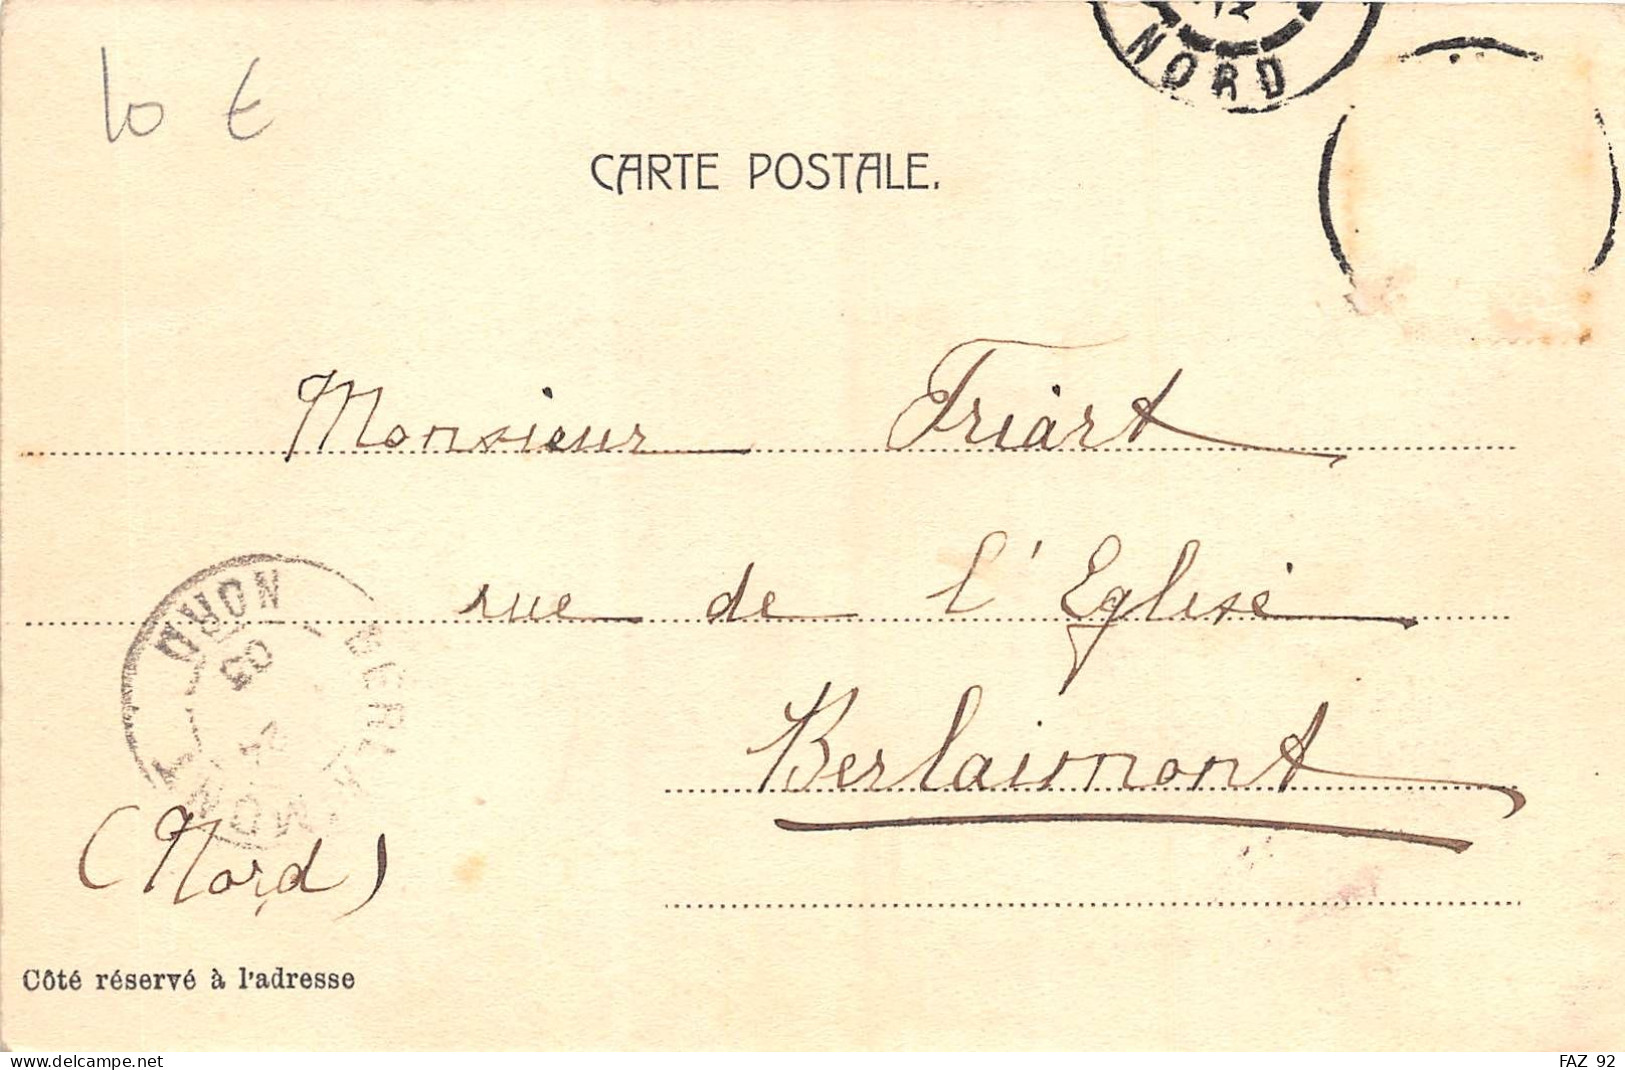 NORD
10 €
CARTE POSTALE.
Monsieur Friart
rue de l'Eglise
Berlaimont
(Nord)
NORD
03
BERLAIMONT
Côté réservé à l'adresse
www.delcampe.net
FAZ 92